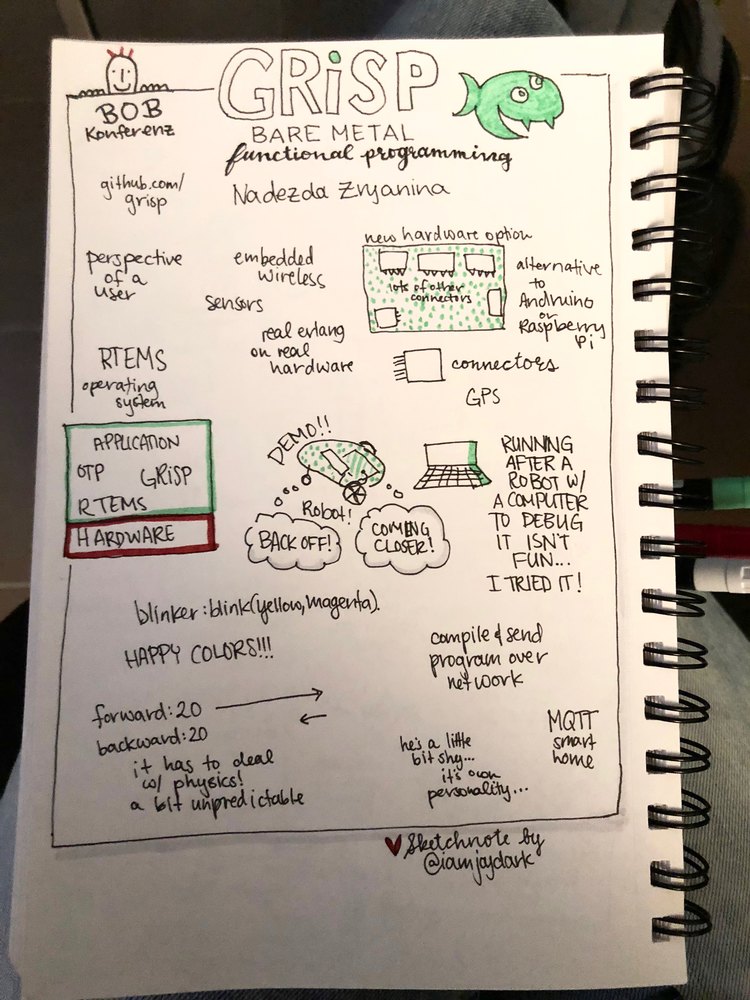 GRiSP
BOB
Konferenz
BARE METAL
functional programming
github.com/
grisp
Nadezda Zryanina
perspective
of a
user
embedded
wireless
sensors
real erlang
on real
hardware
new hardware option
lots of other
connectors
alternative
to
Andruino
or
Raspberry
Pi
RTEMS
operating
system
connectors
GPS
APPLICATION
OTP
GRiSP
RTEMS
HARDWARE
DEMO!!
Robot!
BACK OFF!
COMING
CLOSER!
RUNNING
AFTER A
ROBOT W/
A COMPUTER
TO DEBUG
IT ISN'T
FUN...
I TRIED IT!
blinker:blink(yellow,magenta).
HAPPY COLORS!!!
compile & send
program over
network
forward:20
backward:20
it has to deal
w/ physics!
a bit unpredictable
he's a little
bit shy...
it's own
personality...
MQTT
smart
home
Sketchnote by
@iamjaydark